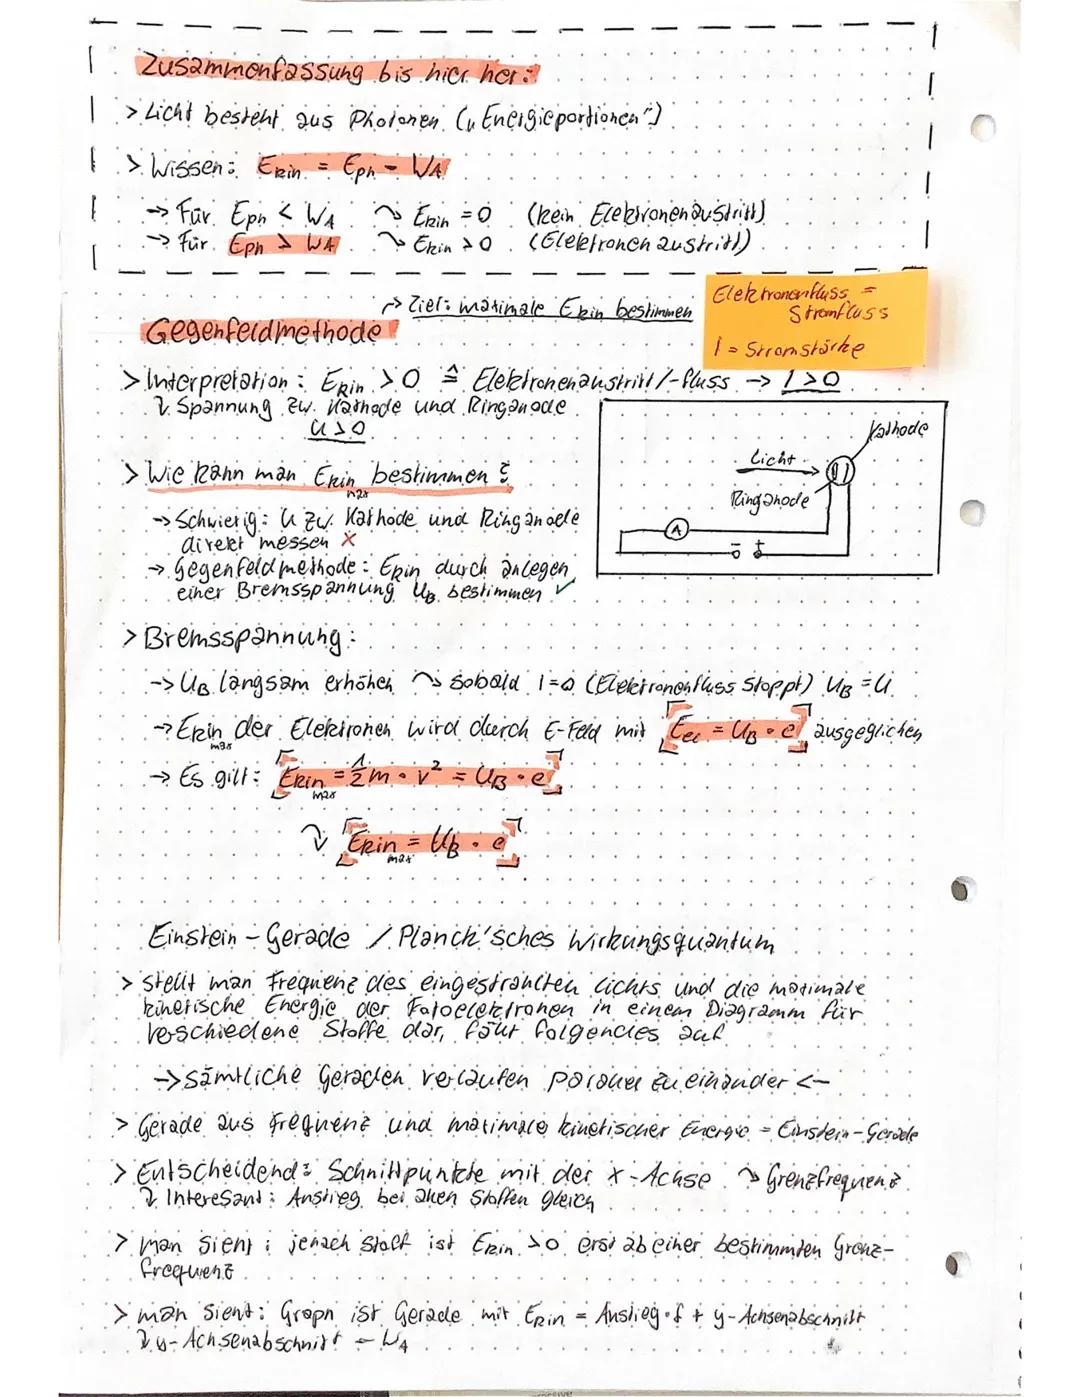 Zusammenfassung bis hier her:
> Licht besteht aus Photonen („Energieportionen")
> Wissen: Ekin = Eph - WA
→ Für Eph < WA ↝ Ekin = 0 (kein Elektronenaustritt)
→ Für Eph > WA ↝ Ekin > 0 (Elektronenaustritt)
→ Ziel: maximale Ekin bestimmen
Elektronenfluss =
Stromfluss
I = Stromstärke
Gegenfeldmethode
> Interpretation: Ekin > 0 ≙ Elektronenaustritt/-fluss → I > 0
↝ Spannung zw. Kathode und Ringanode
U > 0
Kathode
Licht
Ringanode
A
- +
> Wie kann man Ekin max bestimmen?
→ Schwierig: U zw. Kathode und Ringanode
direkt messen X
→ Gegenfeldmethode: Ekin durch anlegen
einer Bremsspannung UB bestimmen ✓
> Bremsspannung:
→ UB langsam erhöhen ↝ sobald I=0 (Elektronenfluss stoppt) UB = U
→ Ekin max der Elektronen wird durch E-Feld mit [Eel = UB · e] ausgeglichen
→ Es gilt: [Ekin max = 1/2 m · v² = UB · e]
↝ [Ekin max = UB · e]
Einstein - Gerade / Planck'sches Wirkungsquantum
> stellt man Frequenz des eingestrahlten Lichts und die maximale
kinetische Energie der Fotoelektronen in einem Diagramm für
verschiedene Stoffe dar, fällt folgendes auf
→ sämtliche Geraden verlaufen parallel zu einander ←
> Gerade aus Frequenz und maximale kinetischer Energie = Einstein-Gerade
> Entscheidend: Schnittpunkte mit der x-Achse ↝ Grenzfrequenz
↝ Interesant: Anstieg bei allen Stoffen gleich
> man sieht: jenach Stoff ist Ekin > 0 erst ab einer bestimmten Grenz-
frequenz
> man sieht: Graph ist Gerade mit Ekin = Anstieg · f + y-Achsenabschnitt
↝ y-Achsenabschnitt - WA